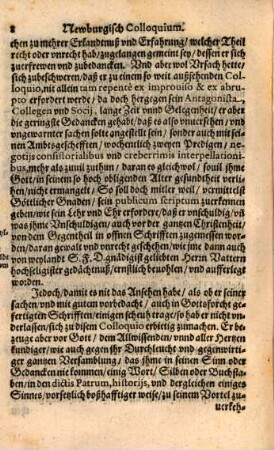 8 Newburgisch Colloquium.
chen zu mehrer Erkandtnuß vnd Erfahrung / welcher Theil
recht oder vnrecht hab / zugelangen gemeint sey / dessen er sich
zuerfrewen vnd zubedancken. Vnd aber wol Vrsach hette /
sich zubeschweren / daß er zu einem so weit außsehenden Col-
loquio, nit allein tam repentè ex improuiso & ex abru-
pto erfordert werde / da doch hergegen sein Antagonista,
Collegen vnd Socij, lange Zeit vnd Gelegenheit / er aber
die geringste Gedancken gehabt / daß es also vnuersehen / vnd
vngewarnter sachen solte angestellt sein / sonder auch mit seinen
Ambtsgescheffen / wochentlich zweyen Predigen / ne-
gotijs consistorialibus vnd creberrimis interpellationi-
bus, mehr als zuuil zuthun / daran es gleich wol / souil ihme
Gott / in seinem so hoch obligenden Alter gesundtheit verlie-
hen / nicht ermanglet / So soll doch mitler weil / vermittelst
Göttlicher Gnaden / sein publicum scriptum zuerkennen
geben / wie sein Lehr vnd Ehr erfordere / daß er vnschuldig / vñ
was ihme Vnschuldigen / auch vor der gantzen Christenheit /
von dem Gegentheil in offnen Schrifften zugemessen wor-
den / daran gewalt vnd vnrecht geschehen / wie jme dann auch
von weylandt S. F. D. gnädigist geliebten Herrn Vattern
hochseligister gedächtnuß / ernstlich beuohlen / vnd aufferlegt
worden.
Jedoch / damit es nit das Ansehen habe / als ob er seiner
sachen / vnd mit guten vorbedacht / auch in Gottsforcht ge-
fertigten Schrifften / einigen scheuh trage / so hab er nicht vn-
derlassen / sich zu disem Colloquio erbietig zumachen. Er be-
zeuge aber vor Gott / dem Allwissenden / vnnd aller Hertzen
kundiger / wie auch gegen ihr Durchleucht vnd gegenwirti-
ger gantzen Versamblung / das ihme in seinen Sinn oder
Gedancken nie kommen / einig Wort / Silben oder Buchsta-
ben / in den dictis Patrum, historijs, vnd dergleichen einiges
Sinnes / vorsetzlich boßhafftiger weise / zu seinem Vortel zu-
uerkeh-